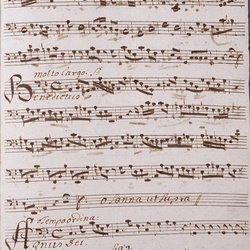 molto largo.
Benedictus
Osanna ut supra
a tempo ordina:
Agnus Dei.